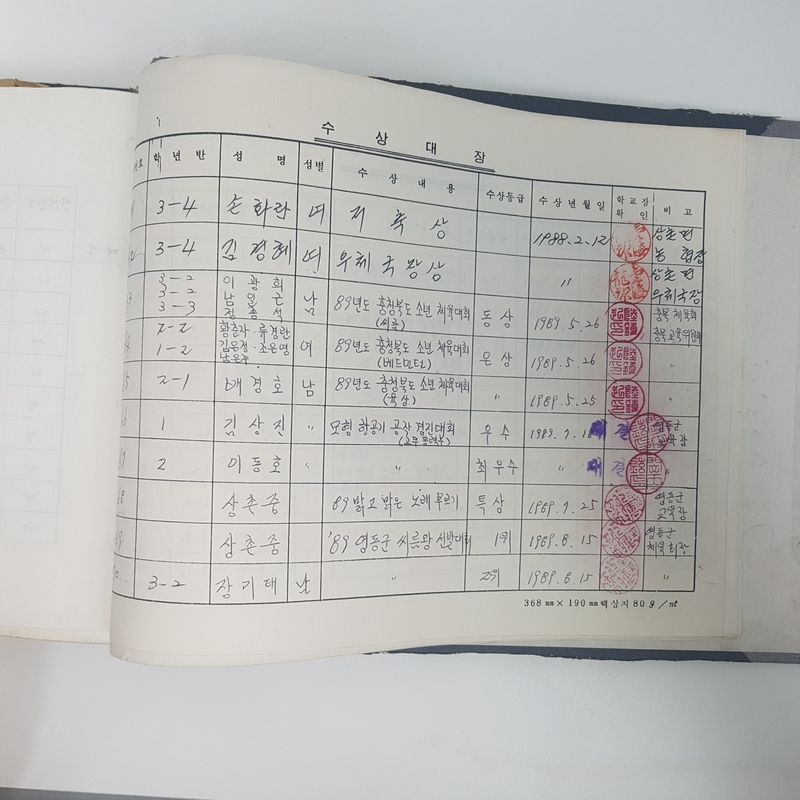 수 상 대 장
학 년 반 성 명 성별 수 상 내 용 수상등급 수 상 년 월 일 학교장 확 인 비 고
3-4 손화란 여 저축상 1988.2.12 상촌면 농협장
3-4 김경혜 여 우체국장상 〃 상촌면 우체국장
3 3-2 이광희 남 89년도 충청북도 소년 체육대회 동상 1989.5.26 충북체육회
3-2 남일근 (씨름) 충북교육위원회
3-3 정종석
2-2 황춘자·류경란 여 89년도 충청북도 소년 체육대회 은상 1989.5.26 〃
1-2 김은정·조은영 (베드민턴)
남은주
5 2-1 배경호 남 89년도 충청북도 소년 체육대회 〃 1989.5.25 〃
(육상)
1 김상진 〃 모형 항공기 공작 경진대회 우수 대결 영동군 교육장
2 이동호 〃 〃 최우수 〃 대결 〃
상촌중 89 밝고 맑은 노래 부르기 특상 1989.7.25 영동군 교육장
상촌중 '89 영동군 씨름왕 선발대회 1위 1989.8.15 영동군 체육회장
3-2 장기태 남 〃 2위 1989.8.15 〃
368㎜×190㎜ 백상지 80g/㎡